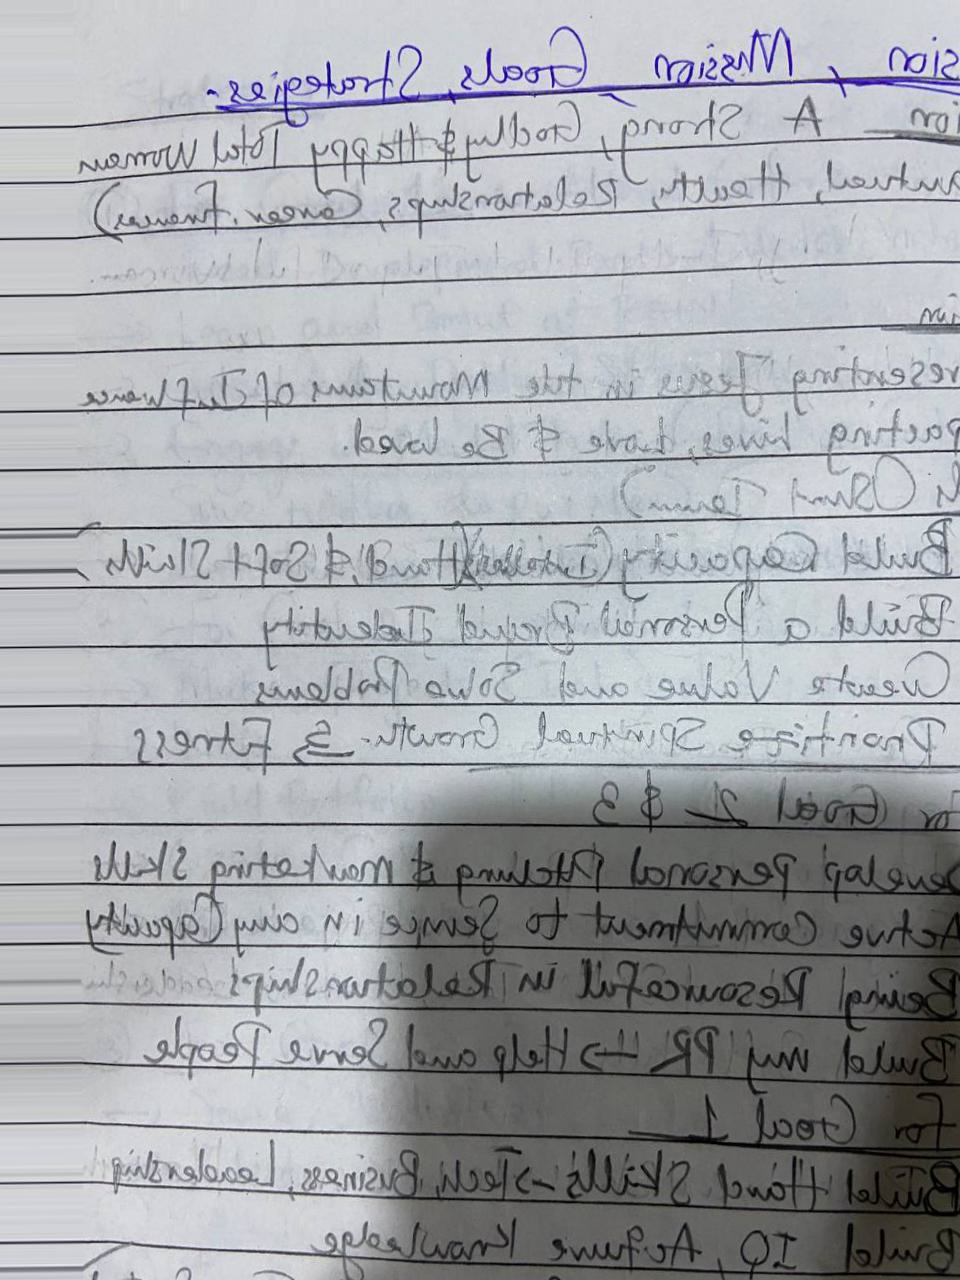 sion, Mission, Goals, Strategies-
ion A Strong, Godly & Happy Total Woman
iritual, Health, Relationships, Career, Finances)
ion
resenting Jesus in the Mountains of Influence
pacting Lives, Love & Be loved.
(Short Term)
Build Capacity (Hard & Soft Skills
Build a Personal Brand Identity
Create Value and Solve Problems
Prioritize Spiritual Growth & Fitness
For Goal 2 & 3
Develop personal Pitching & Marketing Skills
Active Commitment to Service in any Capacity
Being Resourceful in Relationships
Build my PR -> Help and Serve People
For Goal 1
Build Hard Skills -> Tech, Business, Leadership
Build IQ, Acquire Knowledge